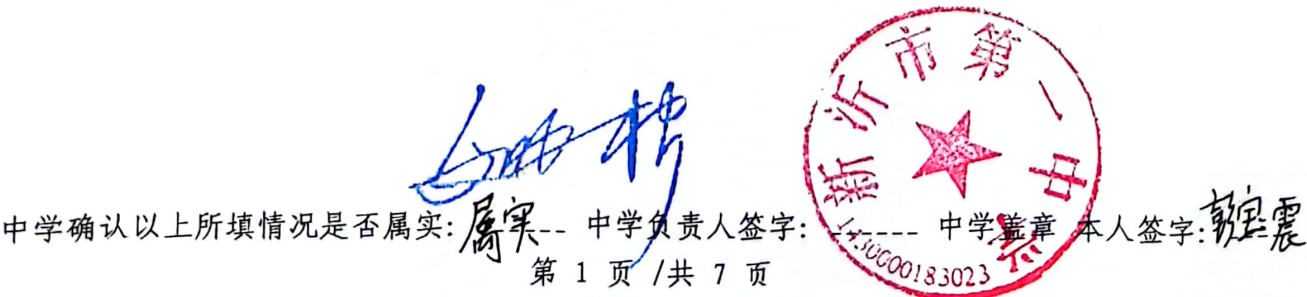 新沂市第一中学
1430000183023
中学确认以上所填情况是否属实:属实-- 中学负责人签字: ------- 中学盖章 本人签字:彭宝震
第 1 页 /共 7 页